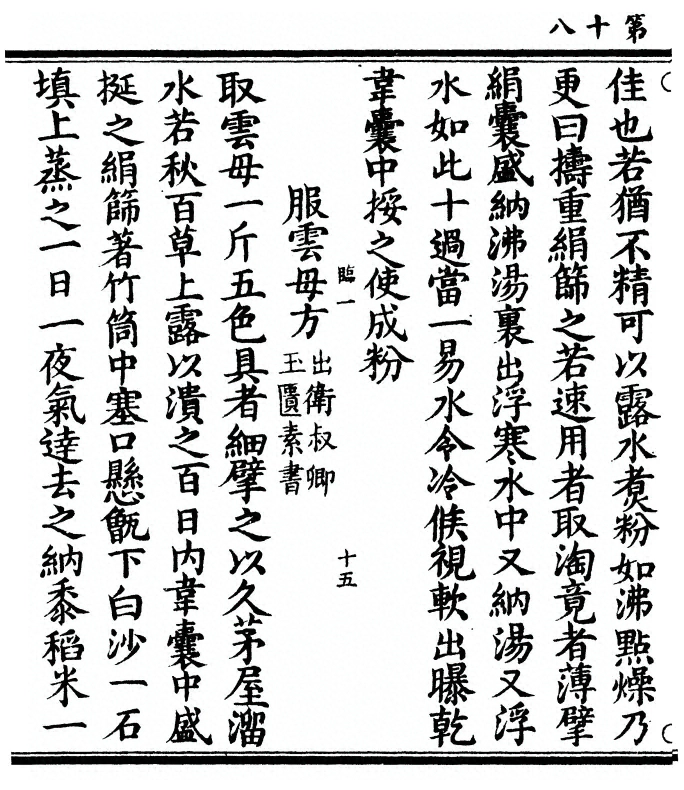 第十八
佳也若猶不精可以露水煮粉如沸點燥乃
更曰擣重絹篩之若速用者取淘竟者薄擘
絹囊盛納沸湯裏出浮寒水中又納湯又浮
水如此十過當一易水令冷候視軟出曝乾
韋囊中挼之使成粉
臨一
十五
服雲母方
出衛叔卿
玉匱素書
取雲母一斤五色具者細擘之以久茅屋溜
水若秋百草上露以漬之百日内韋囊中盛
挻之絹篩著竹筒中塞口懸甑下白沙一石
填上蒸之一日一夜氣達去之納黍稻米一